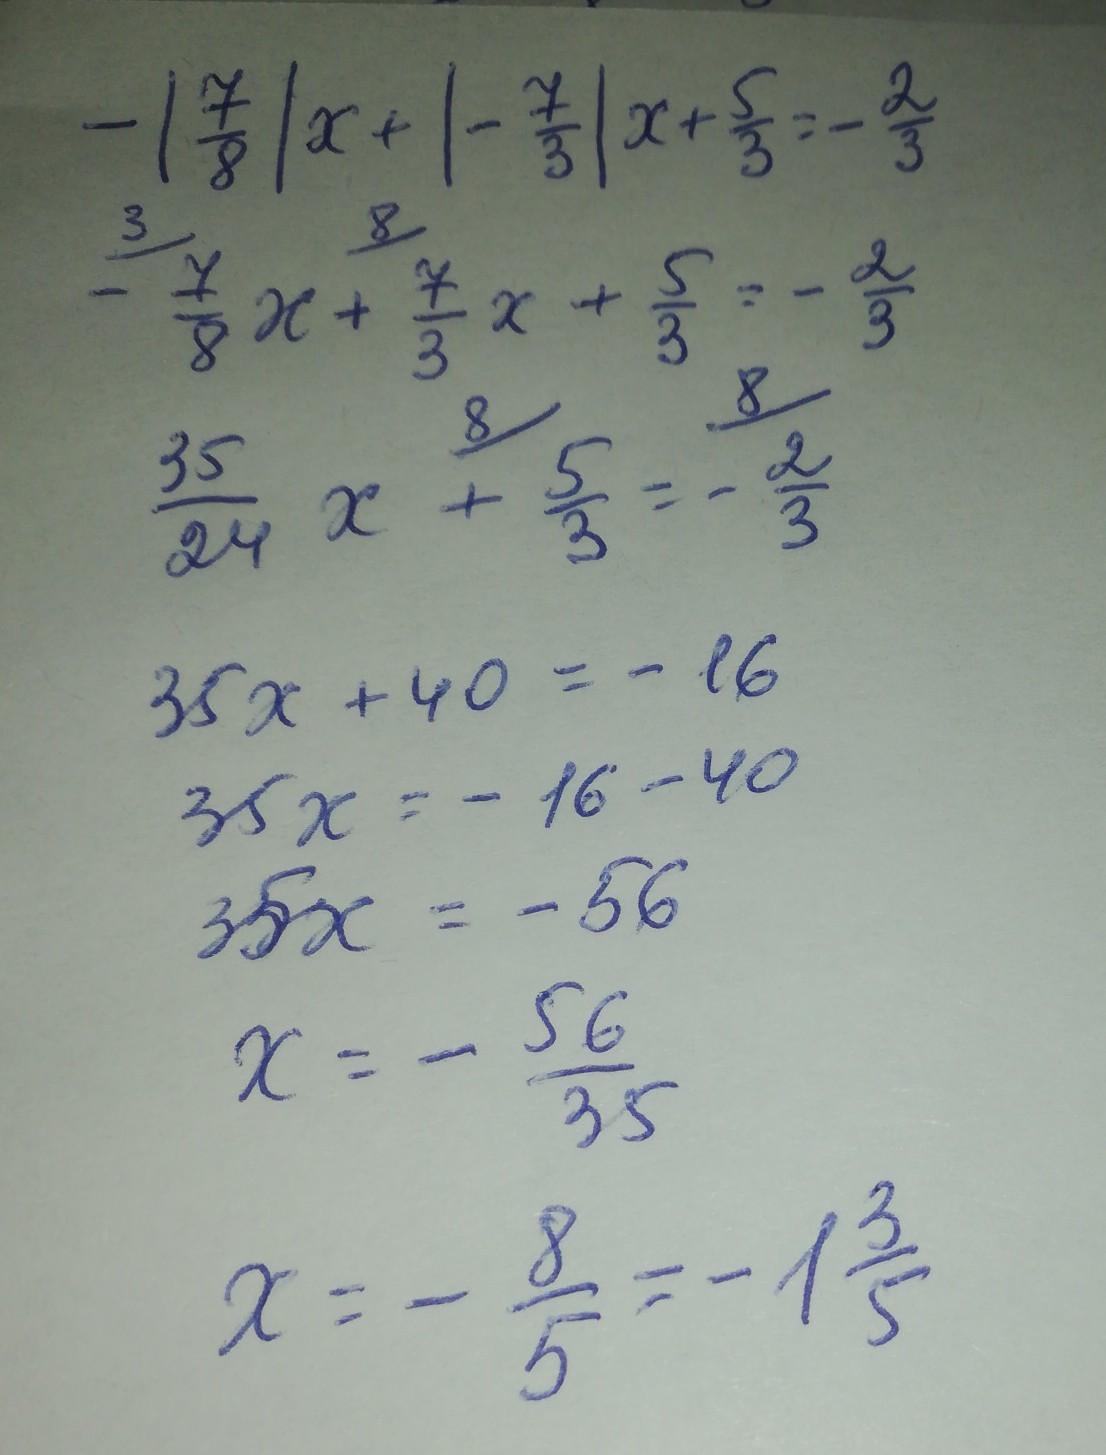 -|7/8|x+|-7/3|x+5/3=-2/3
3/ 8/
-7/8x+7/3x+5/3=-2/3
8/ 8/
35/24x+5/3=-2/3
35x+40=-16
35x=-16-40
35x=-56
x=-56/35
x=-8/5=-1 3/5